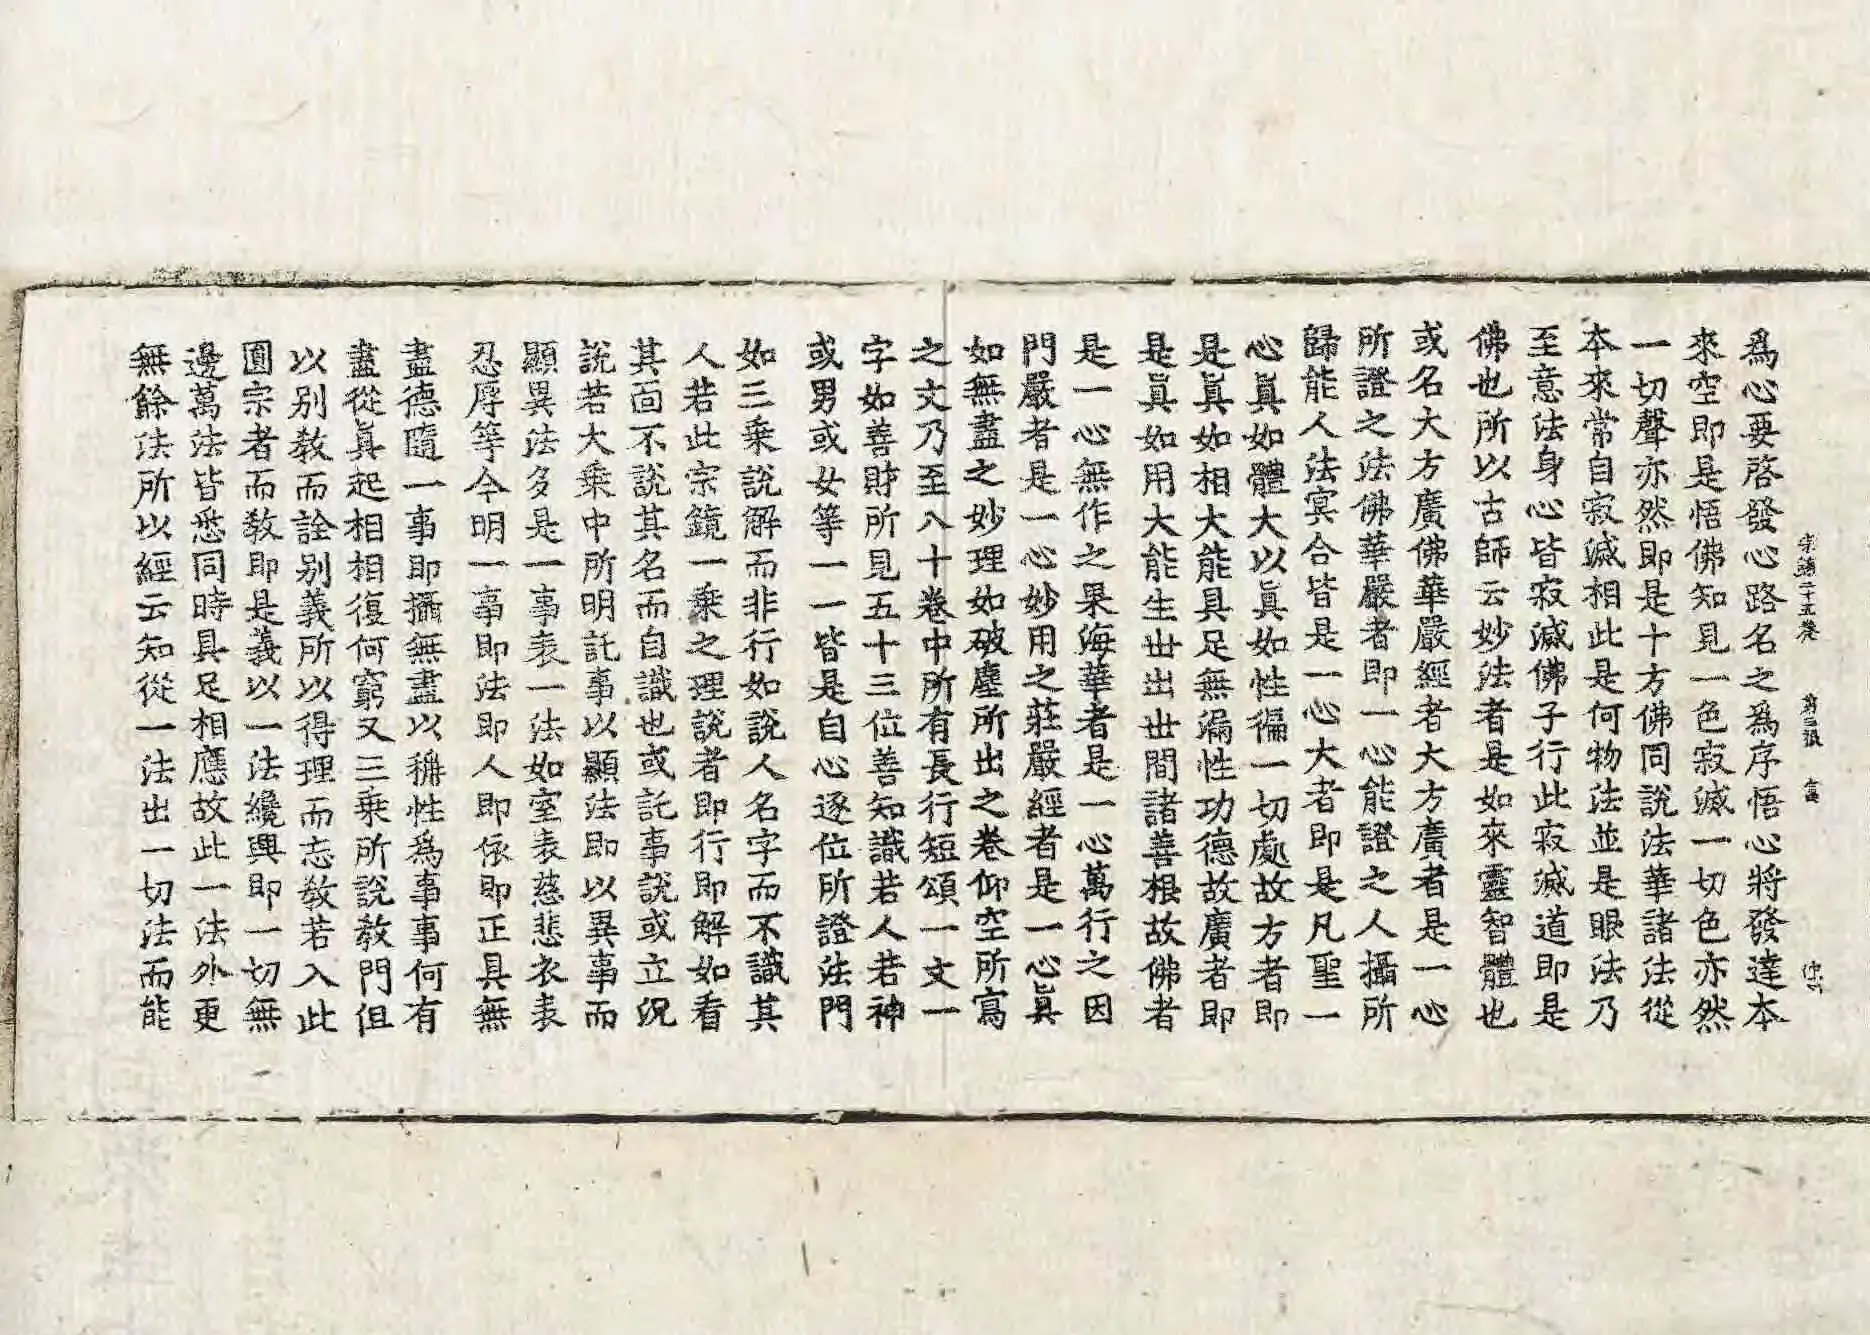 宗鏡二十五卷 第三張 富
爲心要啓發心路名之爲序悟心將發達本
來空即是悟佛知見一色寂滅一切色亦然
一切聲亦然即是十方佛同說法華諸法從
本來常自寂滅相此是何物法並是眼法乃
至意法身心皆寂滅佛子行此寂滅道即是
佛也所以古師云妙法者是如來靈智體也
或名大方廣佛華嚴經者大方廣者是一心
所證之法佛華嚴者即一心能證之人攝所
歸能人法冥合皆是一心大者即是凡聖一
心眞如體大以眞如性徧一切處故方者即
是眞如相大能具足無漏性功德故廣者即
是眞如用大能生世出世間諸善根故佛者
是一心無作之果海華者是一心萬行之因
門嚴者是一心妙用之莊嚴經者是一心眞
如無盡之妙理如破塵所出之卷仰空所寫
之文乃至八十卷中所有長行短頌一文一
字如善財所見五十三位善知識若人若神
或男或女等一一皆是自心逐位所證法門
如三乘說解而非行如說人名字而不識其
人若此宗鏡一乘之理說者即行即解如看
其面不說其名而自識也或託事說或立況
說若大乘中所明託事以顯法即以異事而
顯異法多是一事表一法如室表慈悲衣表
忍辱等今明一事即法即人即依即正具無
盡德隨一事即攝無盡以稱性爲事事何有
盡從眞起相相復何窮又三乘所說教門但
以别教而詮别義所以得理而忘教若入此
圓宗者而教即是義以一法纔興即一切無
邊萬法皆悉同時具足相應故此一法外更
無餘法所以經云知從一法出一切法而能